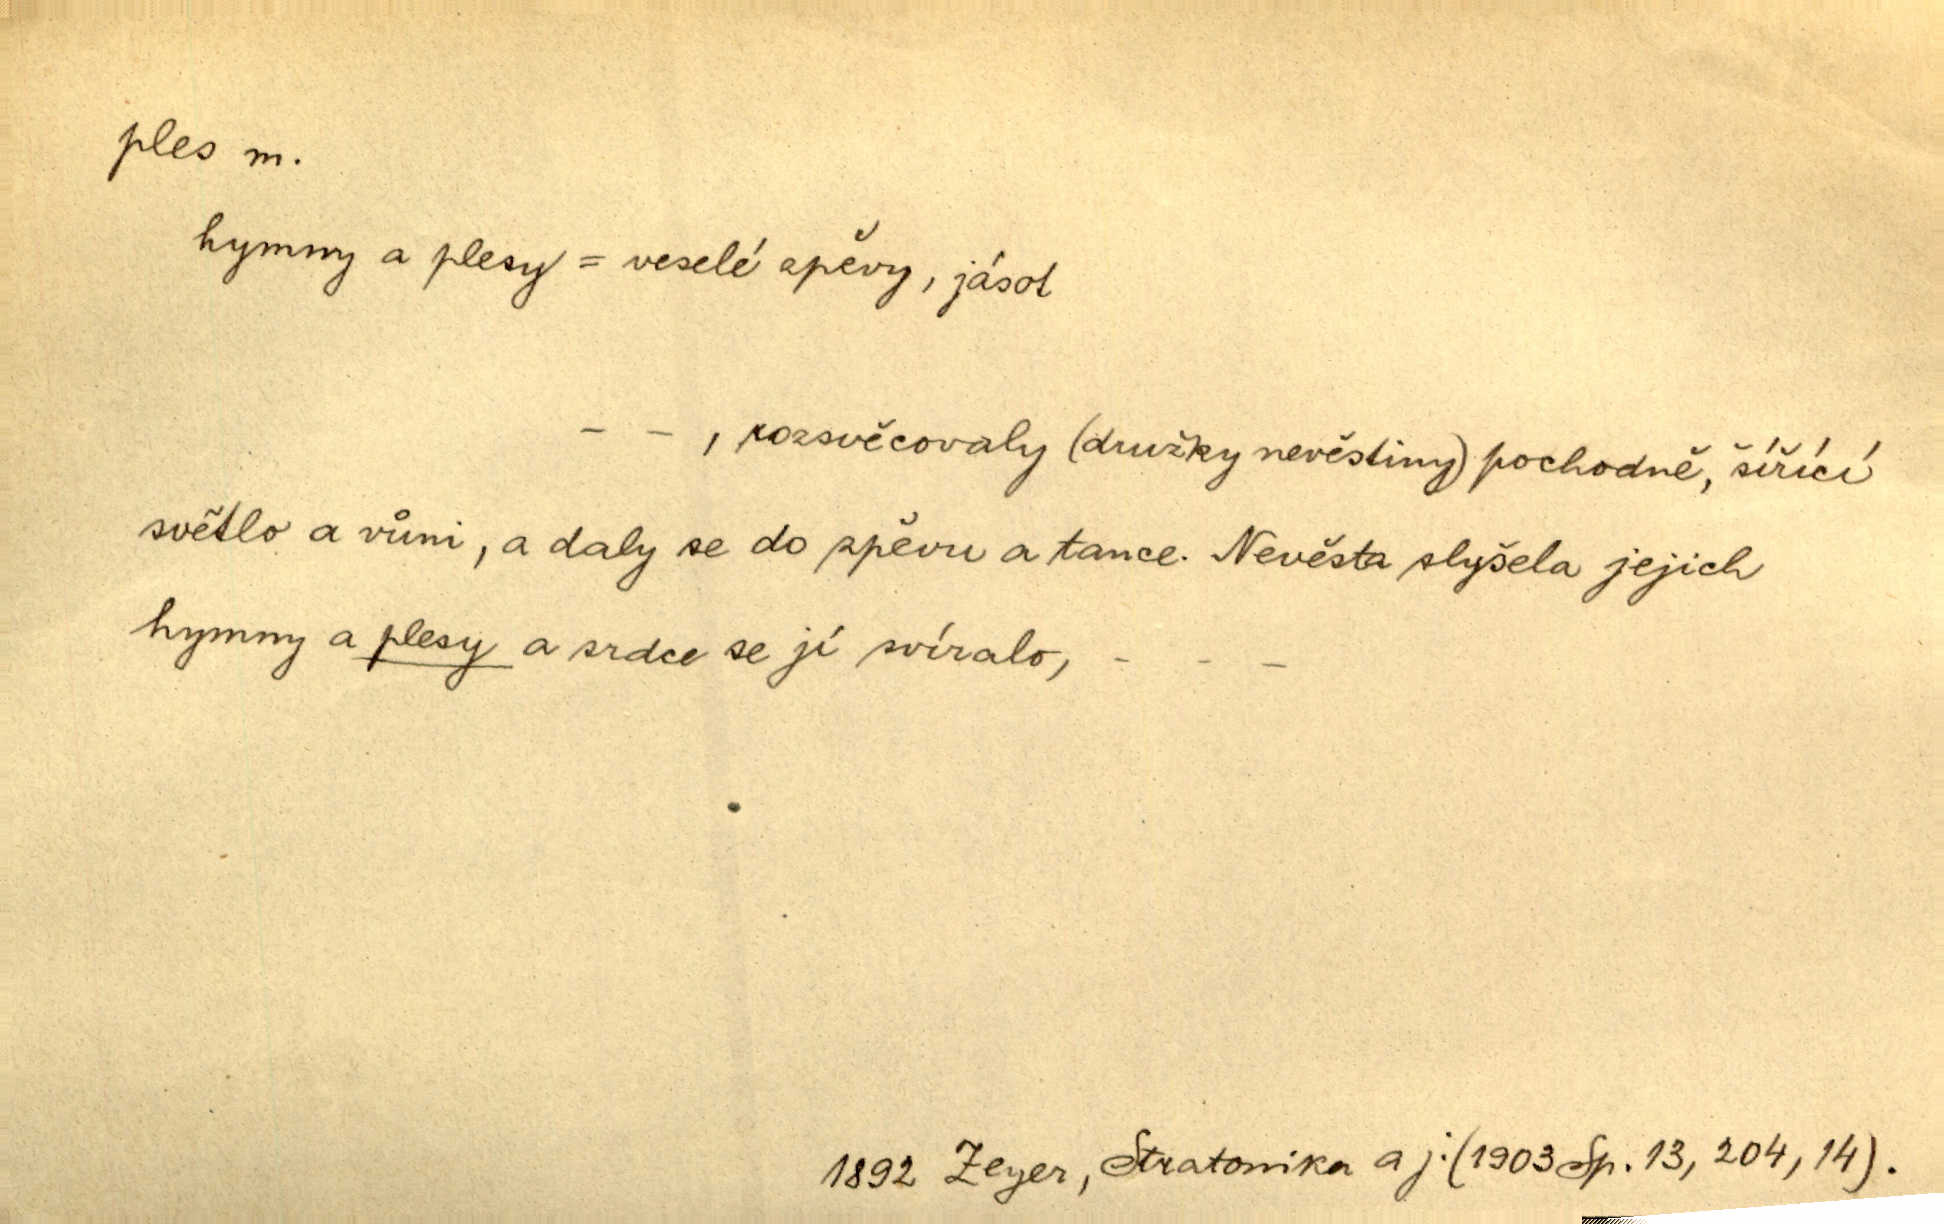 ples m.
hymny a plesy = veselé zpěvy, jásot
– – , rozsvěcovaly (družky nevěstiny) pochodně, šířící
světlo a vůni, a daly se do zpěvu a tance. Nevěsta slyšela jejich
hymny a plesy a srdce se jí svíralo, – – –
1892 Zeyer, Stratonika a j. (1903 Sp. 13, 204, 14).